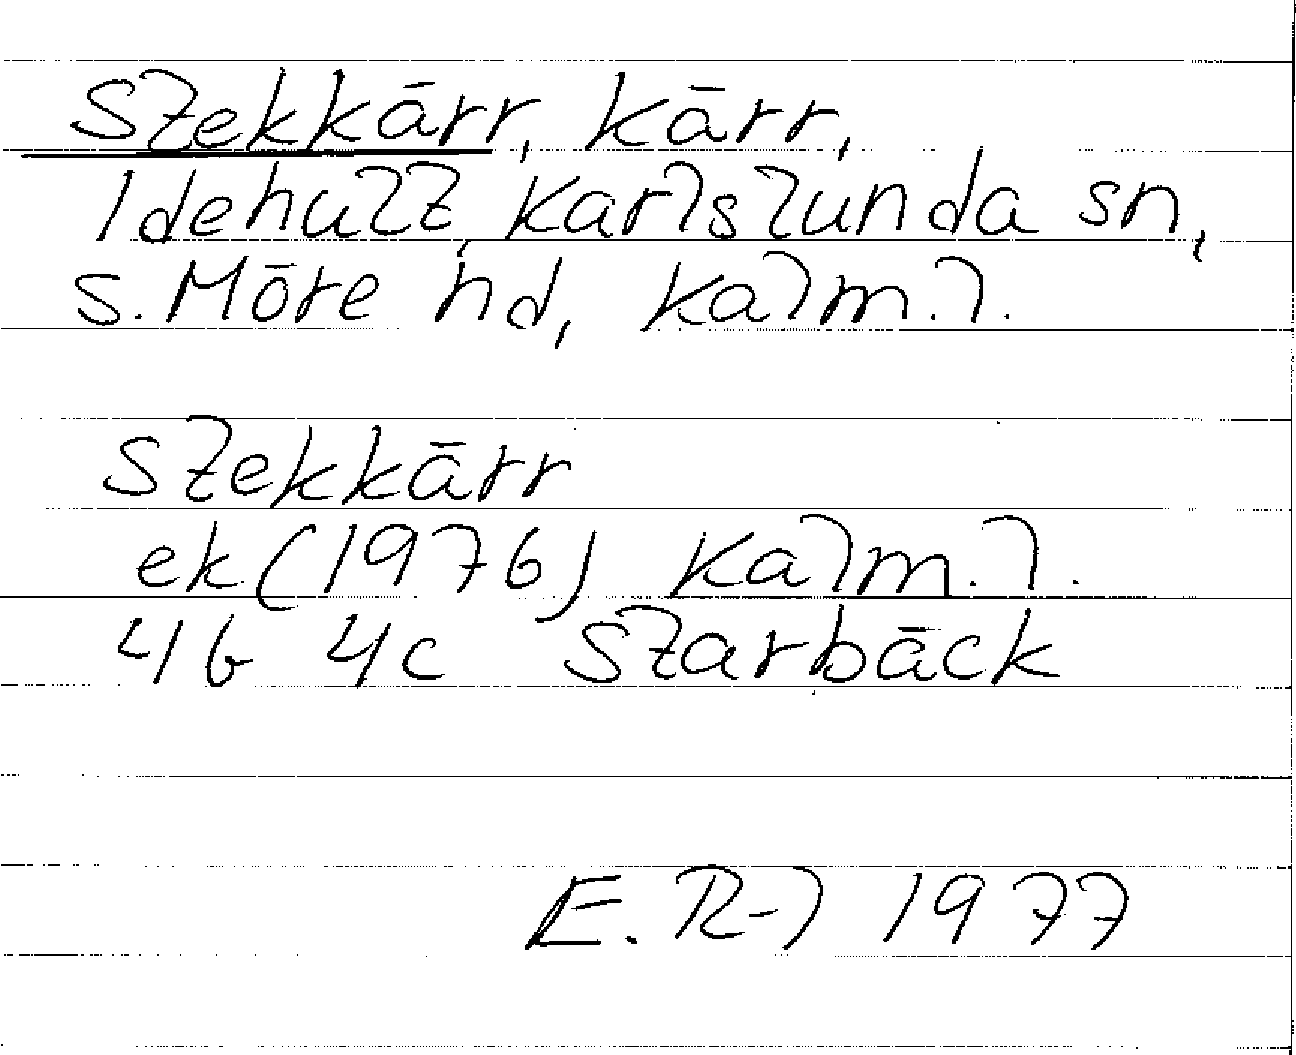 Stekkärr, kärr,
Idehult, Karlslunda sn,
S. Möre hd, Kalm. l.
Stekkärr
ek (1976) Kalm. l.
4G 4c Starbäck
E. R-l 1977